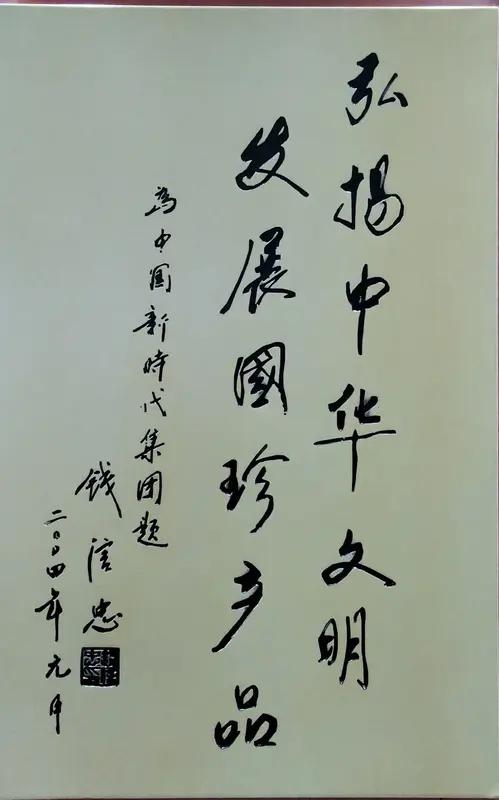 弘扬中华文明
发展國珍产品
為中国新時代集团题
钱信忠
二〇〇四年元月